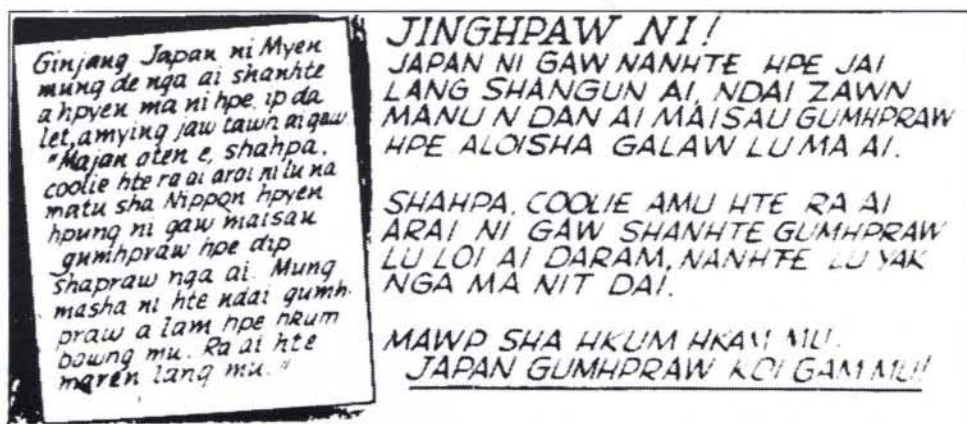 Ginjang Japan ni Myen
mung de nga ai shanhte
a hpyen ma ni hpe, ip da
let, amying jaw tawn ai gaw
"Majan aten e, shahpa,
coolie hte ra ai arai ni lu na
matu sha Nippon hpyen
hpung ni gaw maisau
gumhpraw hpe dip
shapraw nga ai. Mung
masha ni hte ndai gumh-
praw a lam hpe hkum
bawng mu. Ra ai hte
maren lang mu."
JINGHPAW NI!
JAPAN NI GAW NANHTE HPE JAI
LANG SHANGUN AI, NDAI ZAWN
MANU N DAN AI MAISAU GUMHPRAW
HPE ALOISHA GALAW LU MA AI.
SHAHPA, COOLIE AMU HTE RA AI
ARAI NI GAW SHANHTE GUMHPRAW
LU LOI AI DARAM, NANHTE LU YAK
NGA MA NIT DAI.
MAWP SHA HKUM HKAM MU.
JAPAN GUMHPRAW KOI GAM MU!